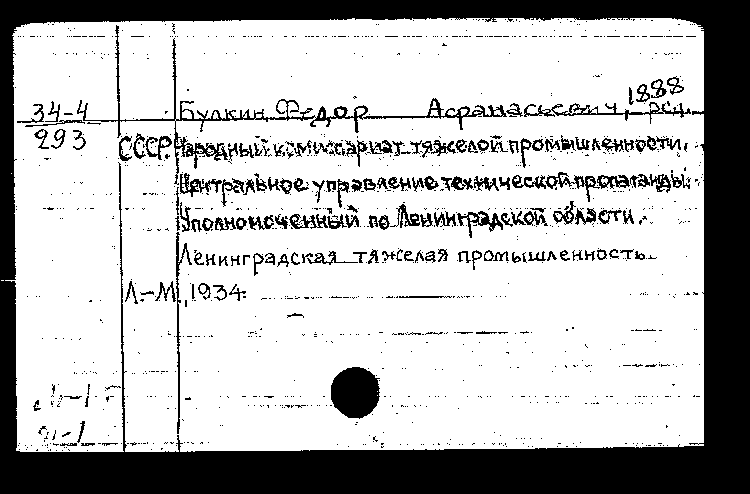 34-4
293
Булкин, Федор Афанасьевич, 1888 ред.
СССР. Народный комиссариат тяжелой промышленности.
Центральное управление технической пропаганды.
Уполномоченный по Ленинградской области.
Ленинградская тяжелая промышленность.
Л.-М., 1934.